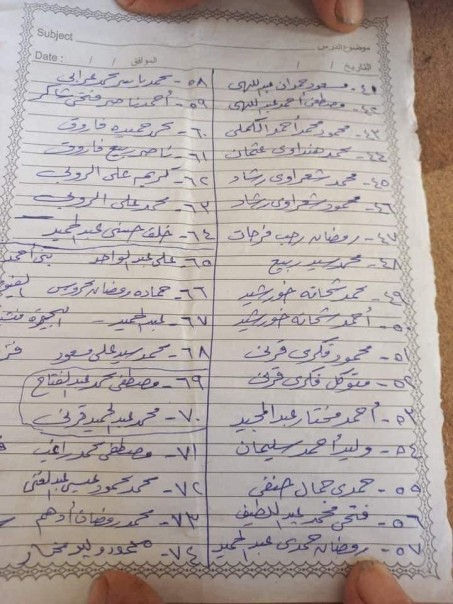 Subject
موضوع الدرس
Date :
الموافق / /
التاريخ / /
٤١- مسعود حمدان عبد
٤٢- مصطفى أحمد
٤٣- محمود محمد أحمد الكملى
٤٤- محمد هنداوى عثمان
٤٥- محمد شعراوى رشاد
٤٦- محمود شعراوى رشاد
٤٧- رمضان رجب فرحات
٤٨- محمد سيد ربيع
٤٩- محمد شحاته خورشيد
٥٠- أحمد شحاته خورشيد
٥١- محمود فكرى قرنى
٥٢- متوكل فكرى قرنى
٥٣- أحمد مختار عبد المجيد
٥٤- وليد أحمد سليمان
٥٥- حمدى جمال حنفى
٥٦- فتحى محمد عبد اللطيف
٥٧- رمضان حمدى عبد الحميد
٥٨- محمد ياسر محمد عرابى
٥٩- أحمد ناصر فتحى شاكر
٦٠- محمد حميده فاروق
٦١- ناصر ربيع فاروق
٦٢- كريم على الروبى
٦٣- محمد على الروبى
٦٤- خلف حسنى عبد الحميد
٦٥- على عبد الواحد بنى أحمد
٦٦- حماده رمضان محروس
٦٧- عبد الحميد
٦٨- محمد سيد على مسعود
٦٩- مصطفى محمد عبد الفتاح
٧٠- محمد عبد الحميد قرنى
٧١- مصطفى محمد راغب
٧٢- محمد محمود عيسى عبد الغنى
٧٣- محمد رمضان أدهم
٧٤- محمود وليد مختار